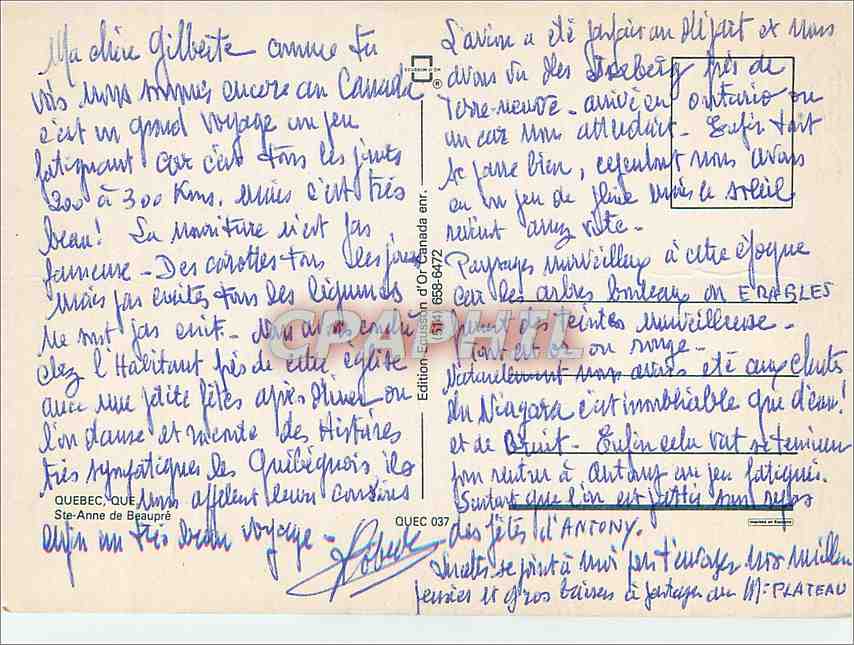 Ma chère Gilberte comme tu
vois nous sommes encore au Canada
c'est un grand voyage un peu
fatiguant car c'est tous les jours
200 à 300 Kms, mais c'est très
beau! La nouriture n'est pas
fameuse - Des carottes tous les jours
mais pas cuites tous les légumes
ne sont pas cuit - nous avons
chez l'Habitant près de cette église
avec une petite fêtes après diner ou
l'on danse et raconte des Histoires
très sympatiques les Québéquois ils
nous appelent leurs cousins
enfin un très beau voyage -
QUEBEC, QUE
Ste-Anne de Beaupré
QUEC 037
ECUSSON D'OR
®
Edition Ecusson d'Or Canada enr.
(514) 658-6472
CPAPHIL
L'avion a été parfait au départ et nous
avons vu des Iceberg près de
Terre-neuve - arrivé en ontario ou
un car nous attendait - Enfin tout
se passe bien, cependant nous avons
eu un peu de pluie mais le soleil
revient assez vite -
Paysages merveilleux à cette époque
car les arbres bouleaux ou ERABLES
des teintes merveilleuse -
tout est or ou rouge -
Naturellement nous avons été aux chutes
du Niagara c'est inoubliable que d'eau!
et de Bruit - Enfin cela vat se terminer
pour rentrer à Antony un peu fatigués.
Surtout que l'on est pas
des fêtes d'ANTONY.
se joint à moi pour t'envoyer nos meilleures
pensées et gros baisers à partager au Mme PLATEAU